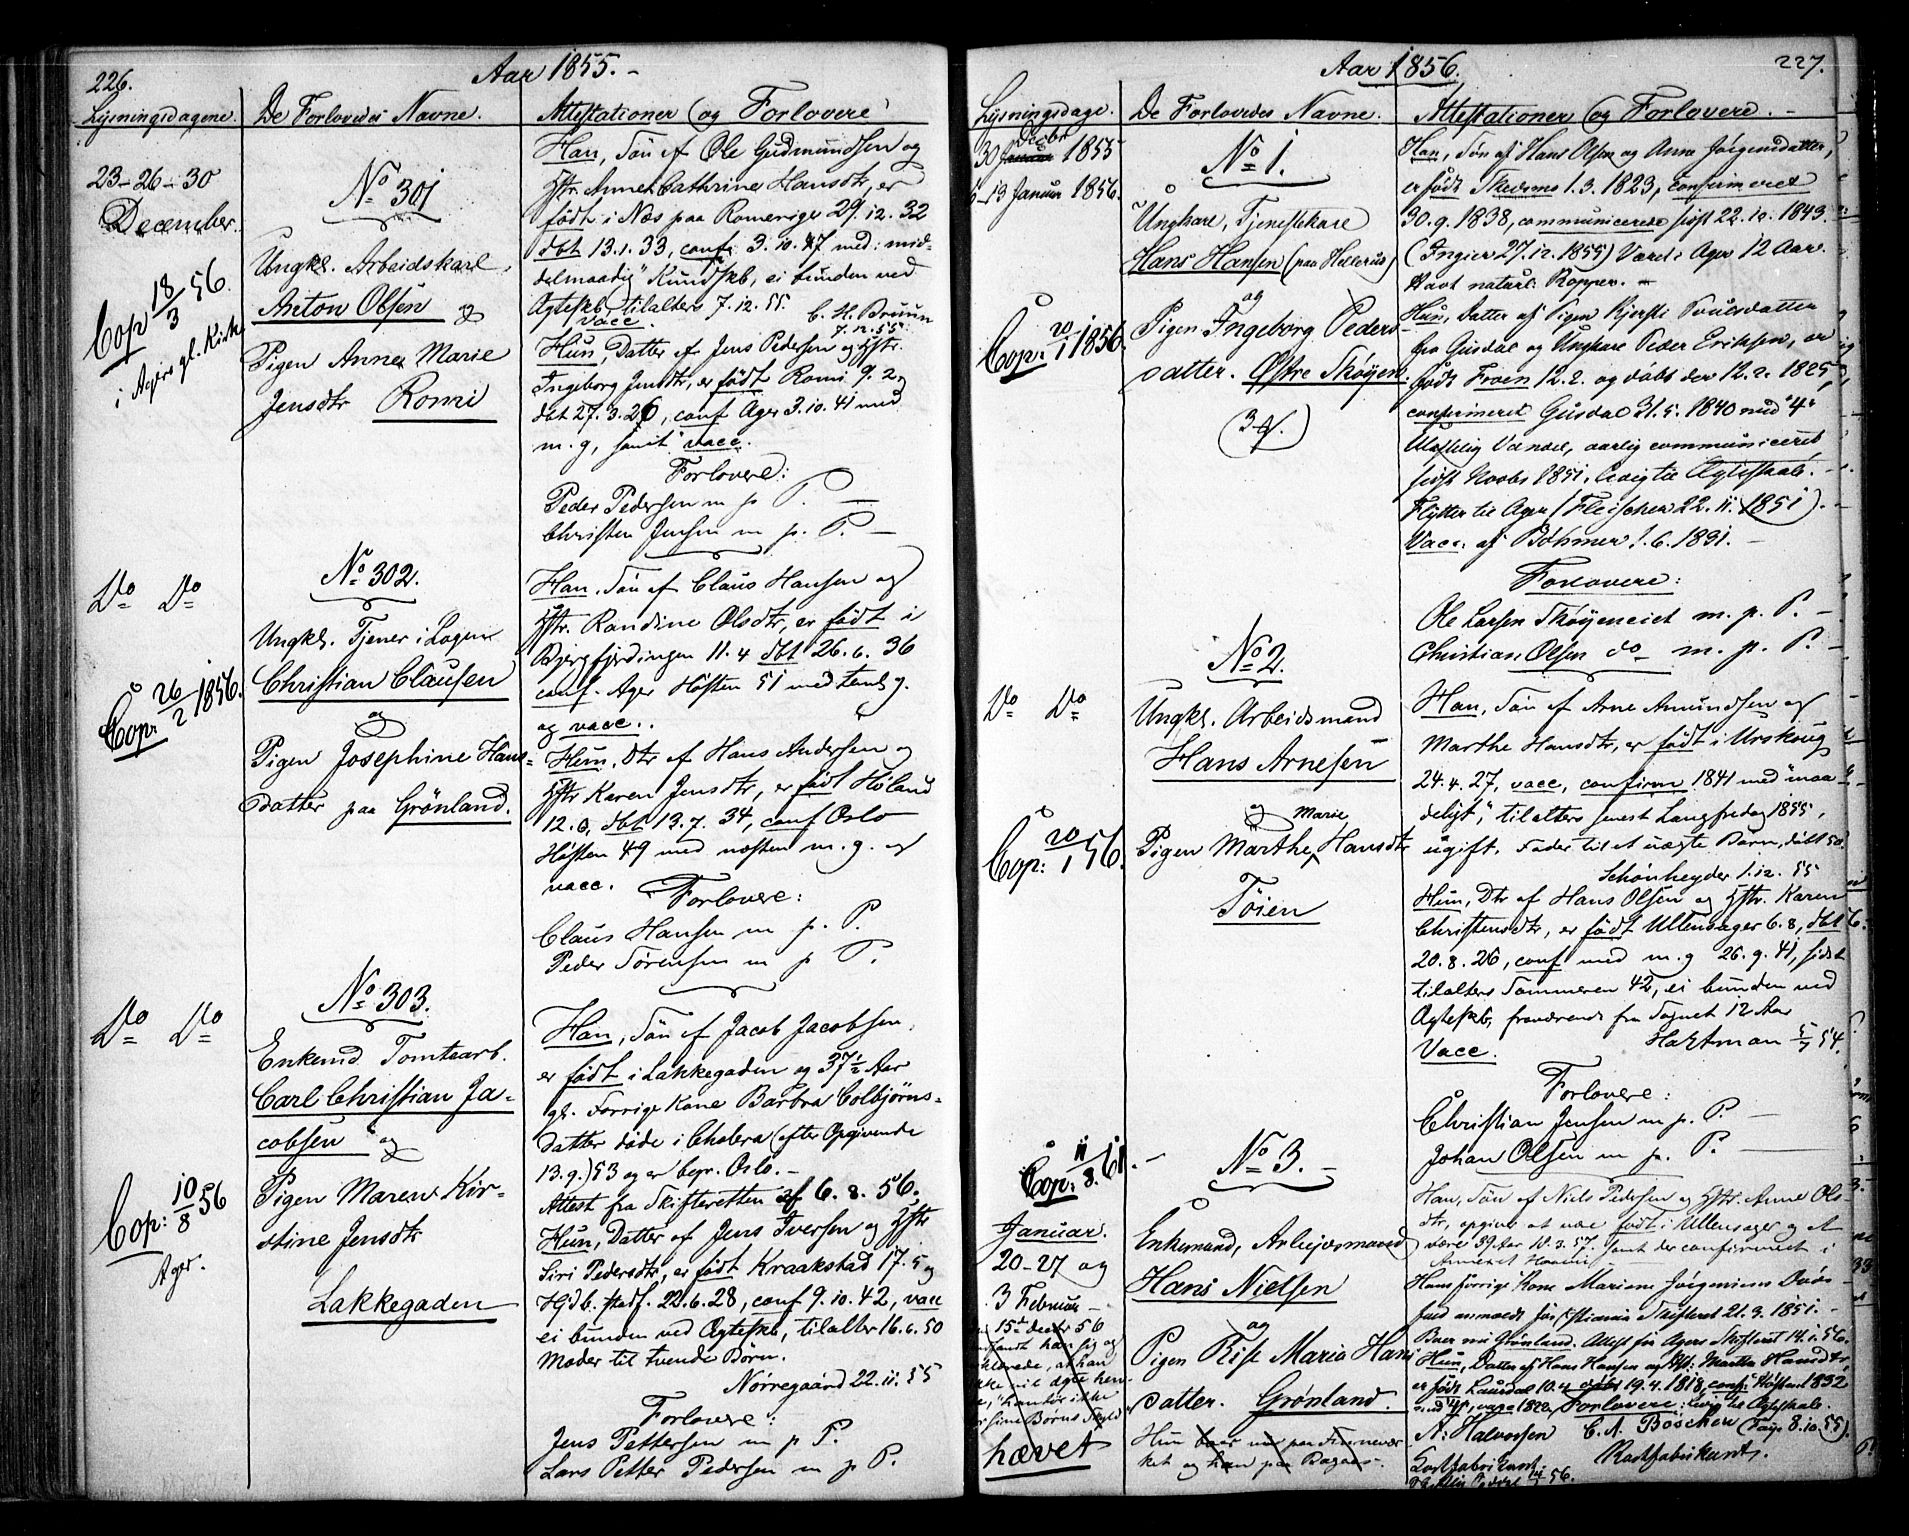 226.
Aar 1855. -
Lysningsdagene.
De Forlovedes Navne.
Attestationer (og Forlovere
23-26-30
December.
Cop 18/3 56.
i Agers gl. Kirke
No 301
Ungkl. Arbeidskarl
Anton Olsen og
Pigen Anne Marie
Jensdtr Romi
Han, Søn af Ole Gudmundsen og
Hstr. Anne Cathrine Hansdtr, er
født i Næs paa Romerige 29.12.32
dbt 13.1.33, conf. 3.10.47 med: mid-
delmaadig" Kundskb, ei bunden ved
Ægteskb, tilalters 7.12.55. C. H. Bruun
vacc. 7.12.55.
Hun, Datter af Jens Pedersen og Hstr.
Ingeborg Jensdtr, er født Romi 9.2,
dbt 27.3.26, conf Ager 3.10.41 med
m.g, samt vacc.
Forlovere:
Peder Pedersen m p P. —
Christen Jensen m. p. P. —
Do Do
Cop: 26/2 1856.
No 302.
Ungkl. Tjener i Logen
Christian Clausen
og
Pigen Josephine Hans-
datter paa Grønland.
Han, Søn af Claus Hansen og
Hstr. Randine Olsdtr, er født i
Bjergfjerdingen 11.4 dbt 26.6.36
conf. Ager Høsten 51 med temlg.
og vacc..
Hun, Dtr af Hans Andersen og
Hstr Karen Jensdtr, er født Høland
12.6, dbt 13.7.34, conf Oslo
Høsten 49 med næsten m.g. og
vacc.
Forlovere:
Claus Hansen m p. P.
Peder Sørensen m p P.
Do Do
Cop: 10/8 56
Ager.
No 303.
Enkemd Tomtearb.
Carl Christian Ja-
cobsen og
Pigen Maren Kir-
stine Jensdtr
Lakkegaden
Han, Søn af Jacob Jacobsen,
er født i Lakkegaden og 37½ Aar
gl. Forrige Kone Barbra Colbjørns-
datter døde i Cholera (efter Opgivende
13.9.) 53 og er begr. Oslo. -
Attest fra Skifteretten af 6.8.56.
Hun, Datter af Jens Iversen og Hstr
Siri Pedersdtr, er født Kraakstad 17.5 og
Hjdb. stadf. 22.6.28, conf 9.10.42, vacc
ei bunden ved Ægteskb, tilalter 16.6.50
Moder til tvende Børn.
Nørregaard 22.11.55
Forlovere:
Jens Pettersen m p P.
Lars Petter Pedersen m p P.
Aar 1856.
227.
Lysningsdage.
De Forlovedes Navne.
Attestationer (og Forlovere. -
Decbr
30 Januar 1855
6-13 Januar 1856.
Cop: 20/1 1856.
No 1.
Ungkarl, Tjenestekarl
Hans Hansen (paa Hellerud)
og
Pigen Ingeborg Peders-
datter. Østre Skøyen.
Han, Søn af Hans Olsen og Anne Jørgensdatter,
er født Skedsmo 1.3.1823, confirmeret
30.9.1838, communicerede sidst 22.10.1843.
(Ingier 27.12.1855) Været i Ager 12 Aar.
Havt naturl. Kopper. -
Hun, Datter af Pigen Kjersti Povelsdatter
fra Gusdal og Ungkarl Peder Eriksen, er
født Froen 12.2. og døbt den 12.2.1825,
confirmeret Gusdal 31.5.1840 med "4"
Ulastelig Vandel, aarlig communiceret
sidst Novbr 1851. Ledig til Ægteskab.
Flytter til Ager (Fleischer 22.11.1851).
Vacc. af Bøhmer 1.6.1831. -
Forlovere:
Ole Larsen Skøyeneiet m. p. P. -
Christian Olsen do m. p. P. -
Do Do
Cop: 20/1 56.
No 2.
Ungkl. Arbeidsmand
Hans Arnesen
og
Marie
Pigen Marthe Hansdtr
Töien
Han, Søn af Arne Amundsen og
Marthe Hansdtr, er født i Urskoug
24.4.27, vacc, confirm 1841 med "maa
deligt", tilalters senest Langfredag 1855,
ugift. Fader til et uægte Barn, døbt 50.
Schønheyder 1.12.55
Hun, Dtr af Hans Olsen og Hstr. Karen
Christensdtr, er født Ullensager 6.8, dbt
20.8.26, conf med m.g 26.9.41, sidst
tilalters Sommeren 42, ei bunden ved
Ægteskb, fraværende fra Sognet 12 Aar
Vacc. Hartman 5/7 54.
Forlovere:
Christian Jensen m p. P. —
Johan Olsen m p. P. —
Cop: 11/8. 61. -
Januar.
20-27 og
3 Februar
15de decbr 56
hævet
No 3. -
Enkemand, Arbejdsmand
Hans Nielsen
og
Pigen Else Maria Hans
datter. Grønland.
Hun boer
ket og han paa
Han, Søn af Niels Pedersen og Hstr. Anne Ols-
dtr, opgives at være født i Ullensager og at
være 39 Aar 10.3.57. samt der confirmeret i
Hans forrige Kone Mariane Jørgensens Døds-
Boer nu Grønland. Attest fra Agers Skifteret 14.1.56.
Hun, Datter af Hans Hansen og Hst. Martha Hansdtr,
er født Laurdal 10.4 døbt 19.4.1818, conf. Høsten 1832
Forlovere: ledig til Ægteskab.
A. Halvorsen C. A. Boschen (Faye 8.10.55).
Kortfabrikant. Kortfabrikant.